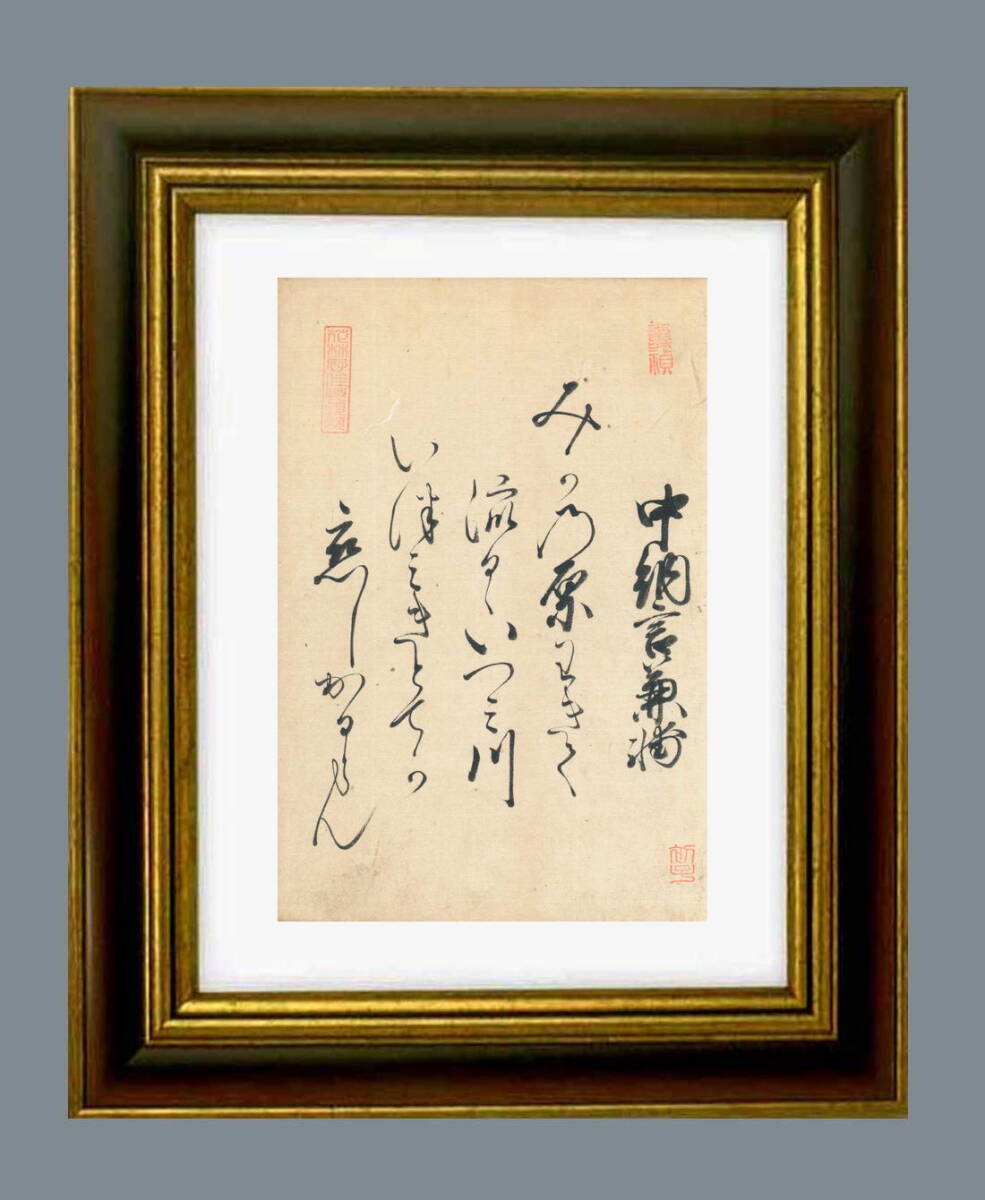 中納言兼輔
みかの原わきて
流るゝいつミ川
い津ミきとてか
恋しかるらん